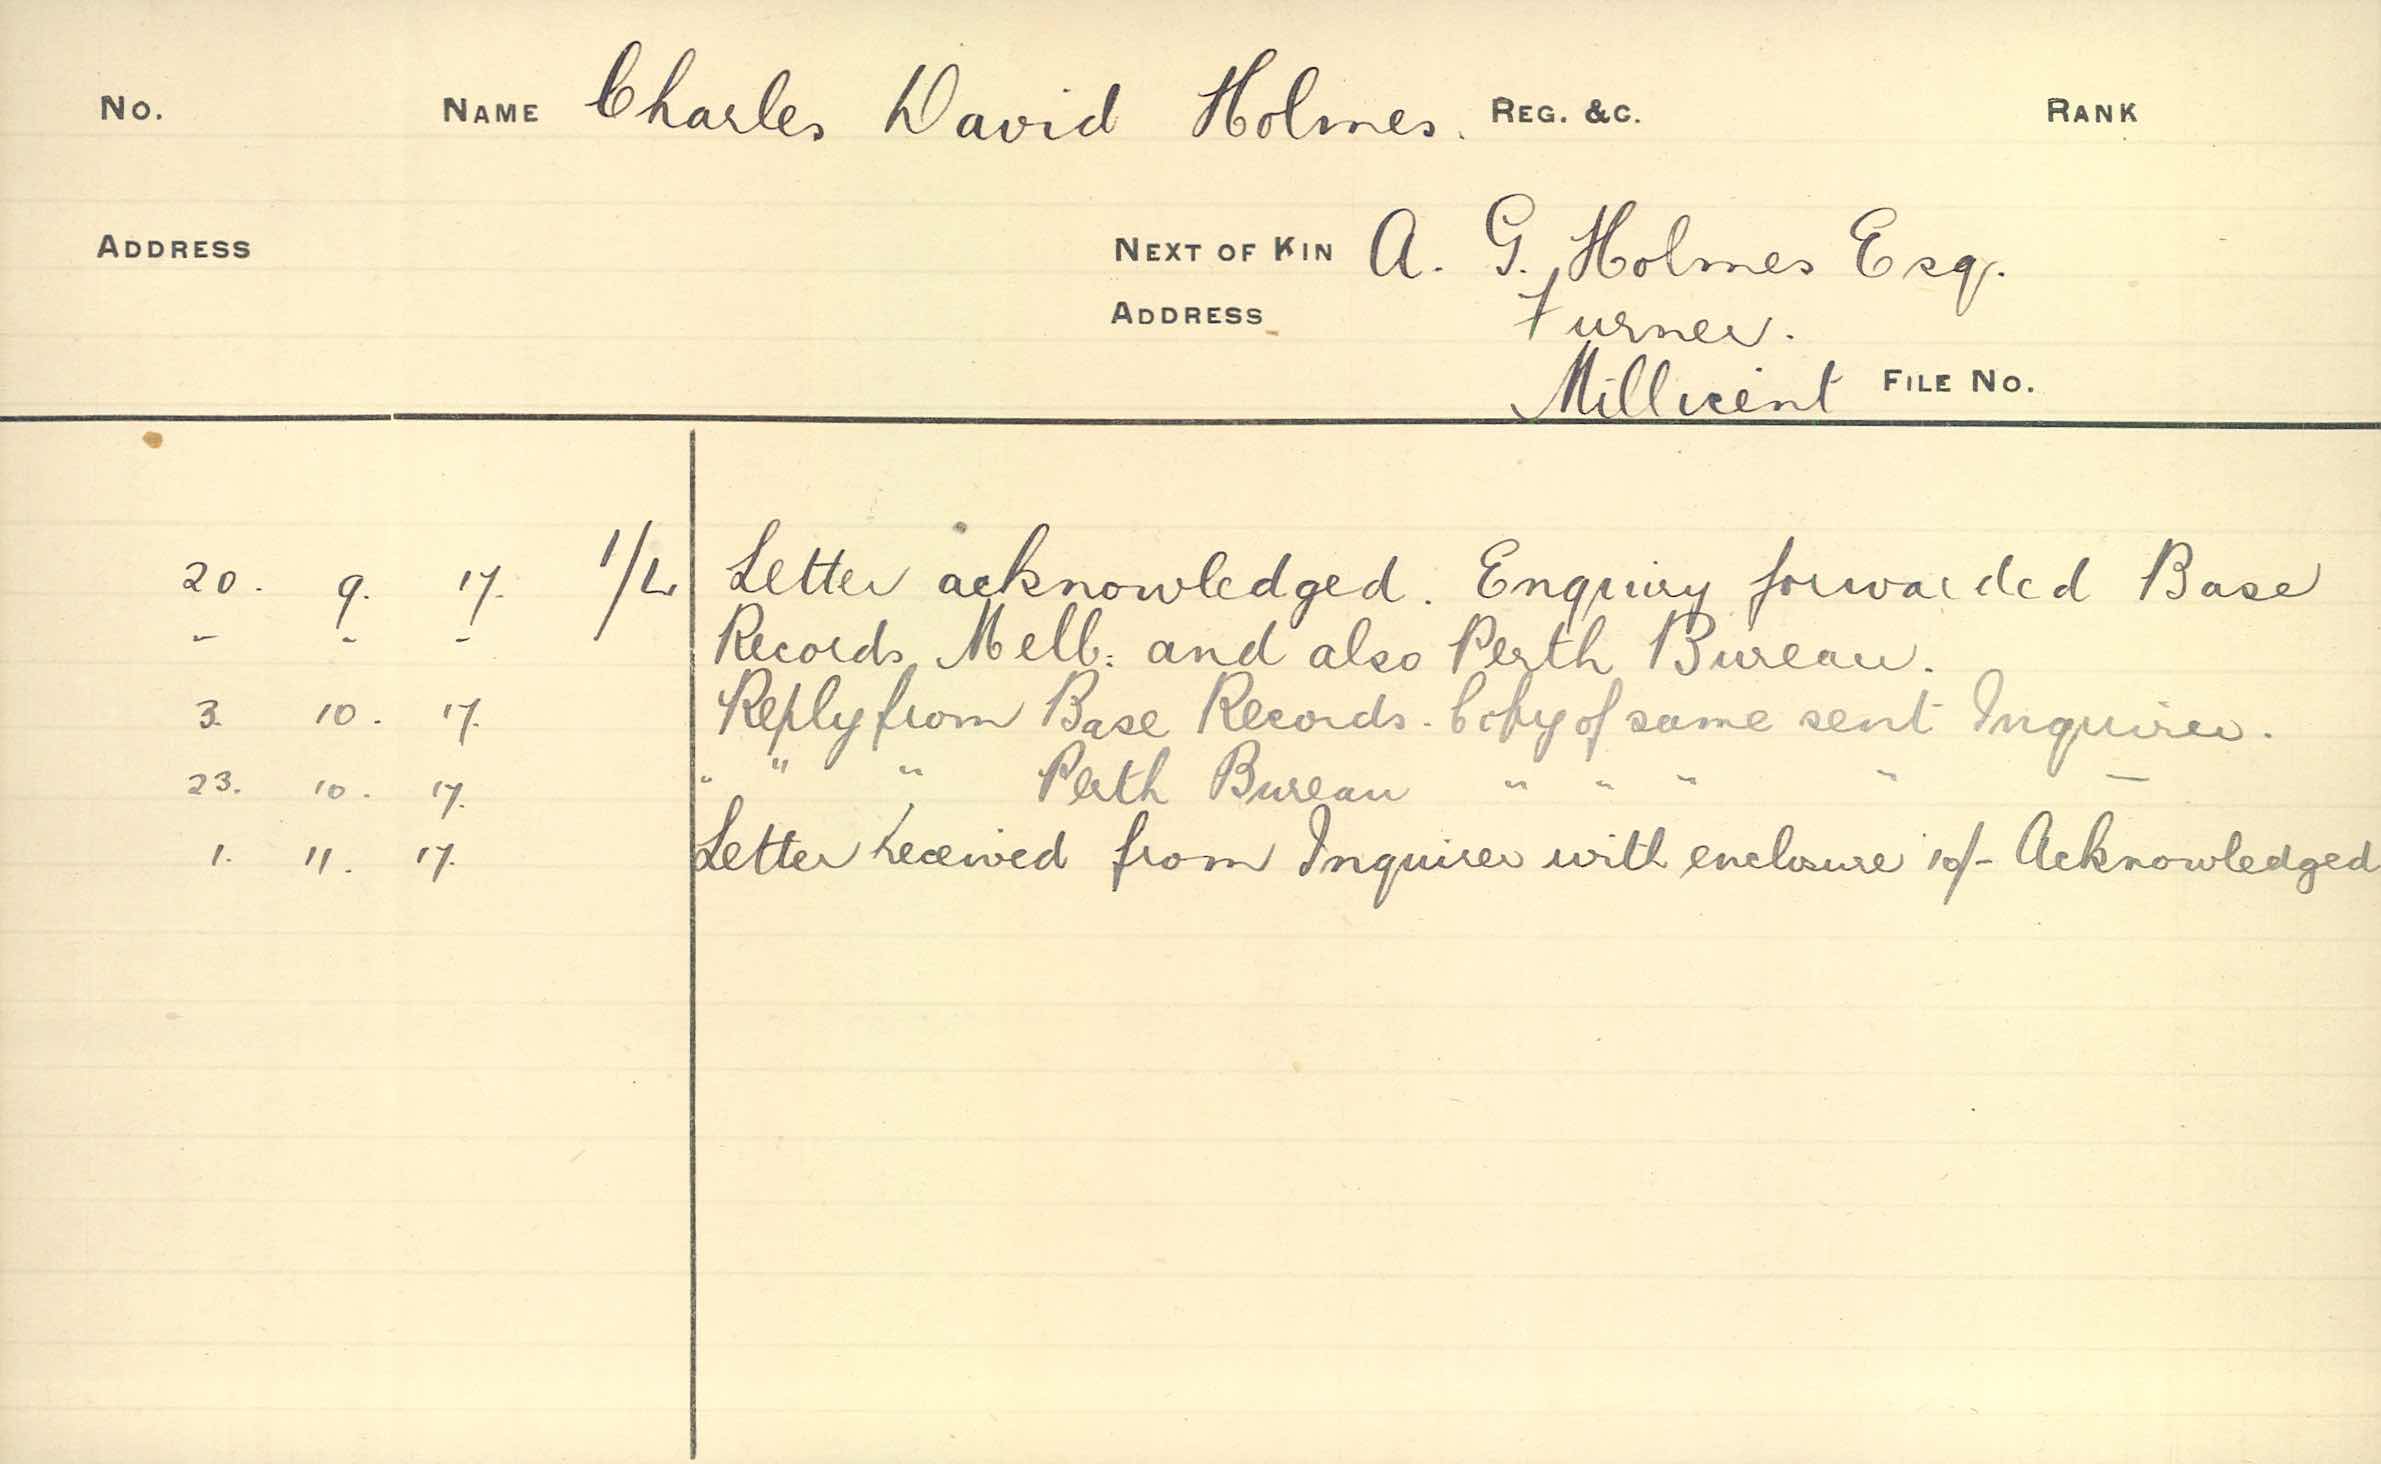 No. NAME Charles David Holmes. REG. &C. RANK
ADDRESS NEXT OF KIN A. G. Holmes Esq.
ADDRESS Furner.
Millicent FILE No.
20. 9. 17. 1/L Letter acknowledged. Enquiry forwarded Base
" " " Records Melb: and also Perth Bureau.
3. 10. 17. Reply from Base Records. Copy of same sent Inquirer.
23. 10. 17. " " " Perth Bureau " " " " —
1. 11. 17. Letter received from Inquirer with enclosure 10/- Acknowledged